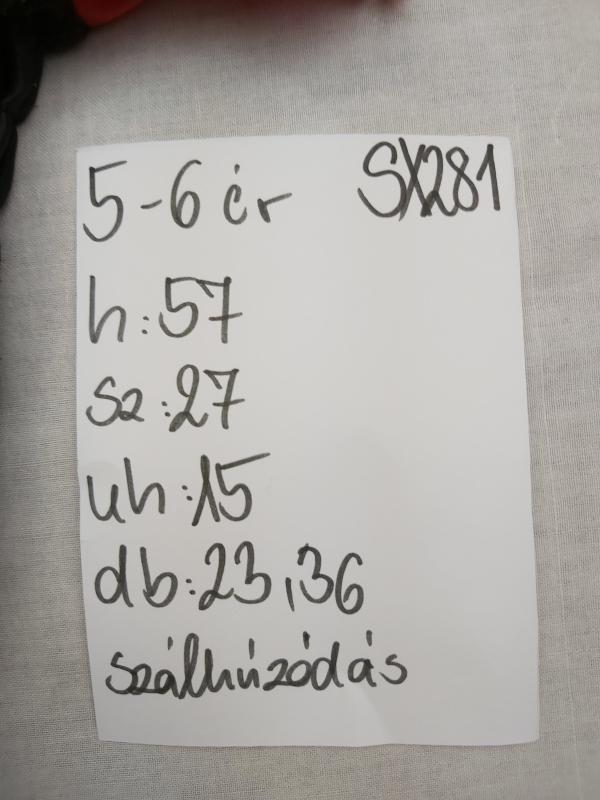 5-6 ér SX281
h:57
sz:27
uh:15
db:23,36
szálhúzódás